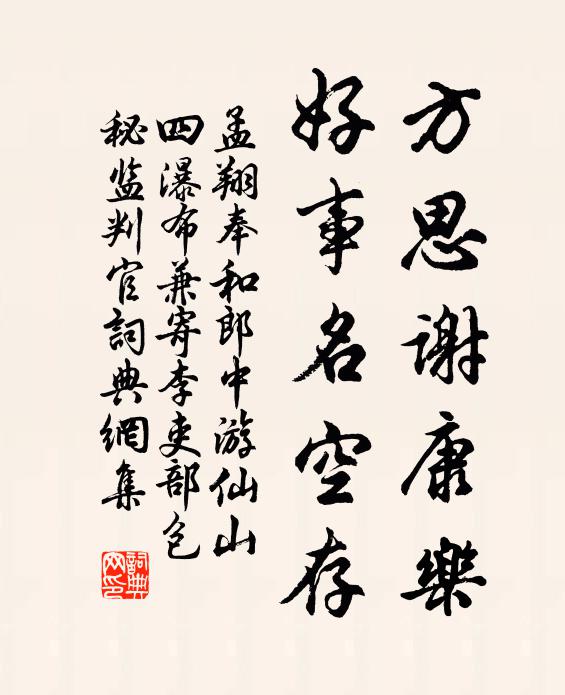 方思谢康樂
好事名空存
孟翔奉和郎中游仙山
四瀑布兼寄李吏部包
秘监判官詞典網集
詞典網印